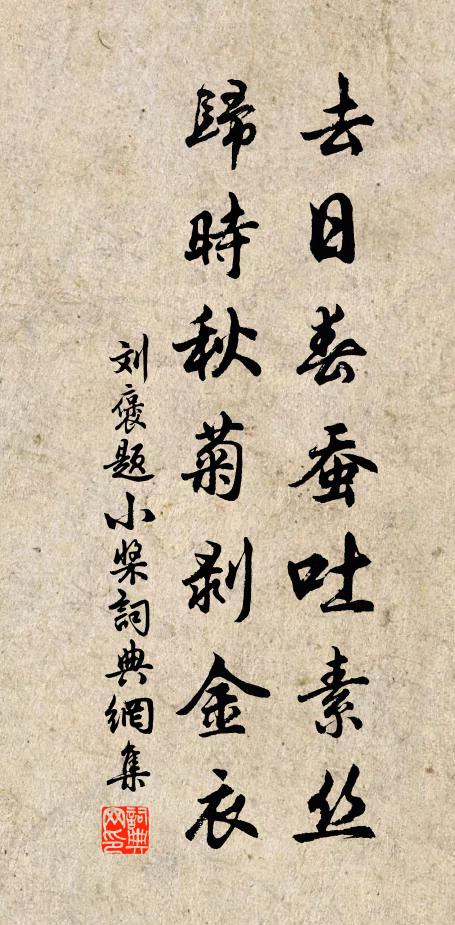 去日春蚕吐素丝
歸時秋菊剥金衣
刘褒題小槳詞典網集
詞典网印